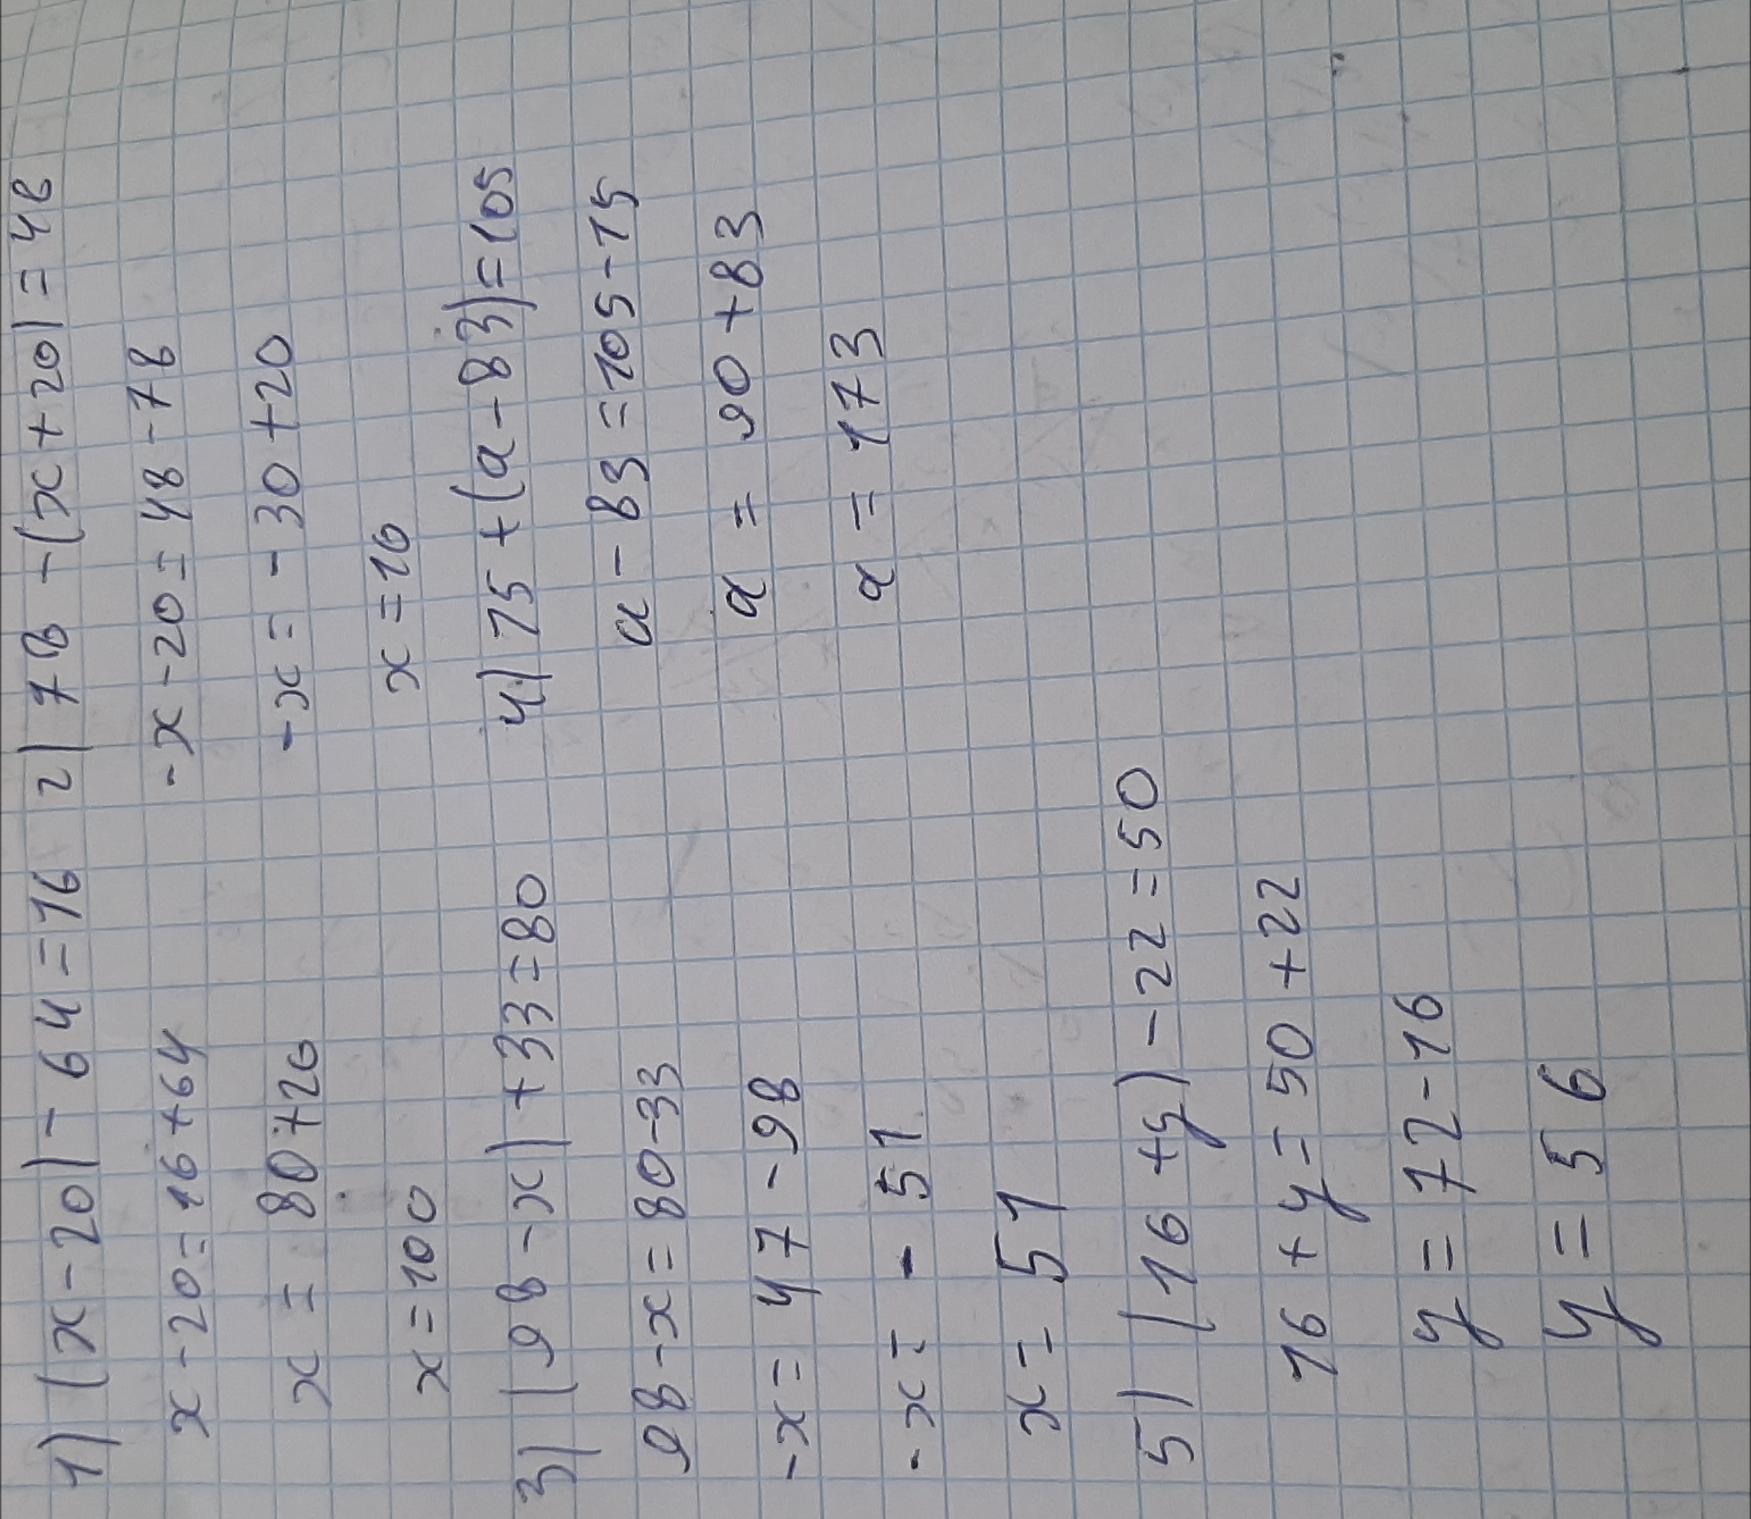 1) (x-20)-64=16
x-20=16+64
x = 80+20
x=100
2) 78-(x+20)=48
-x-20=48-78
-x=-30+20
x=10
3) (98-x)+33=80
98-x=80-33
-x=47-98
-x=-51
x=51
4) 15+(a-83)=105
a-83=105-15
a=90+83
a=173
5) (16+y)-22=50
16+y=50+22
y=72-16
y=56